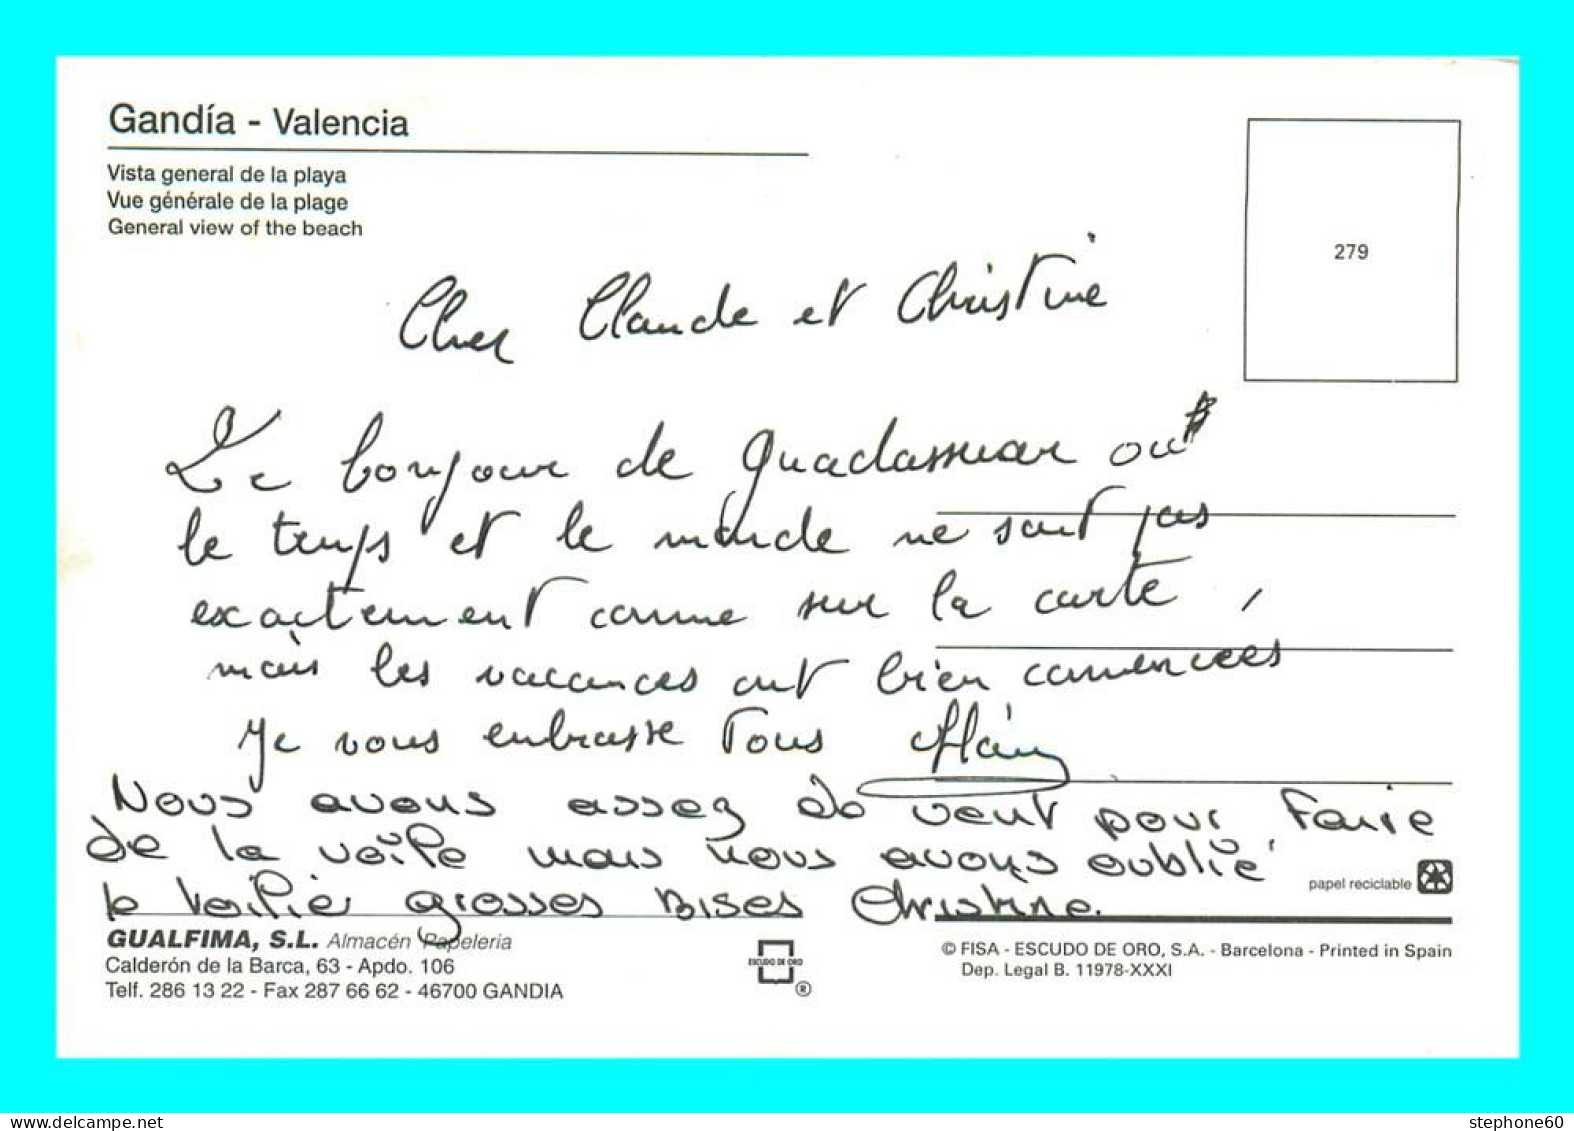 Gandía - Valencia
Vista general de la playa
Vue générale de la plage
General view of the beach
279
Cher Claude et Christine
Le bonjour de Guadassuar où
le temps et le monde ne sont pas
exactement comme sur la carte,
mais les vacances ont bien commencées
Je vous embrasse tous Alain
Nous avons assez de vent pour faire
de la voile mais nous avons oublié
le voilier grosses Bises Christine.
papel reciclable
GUALFIMA, S.L. Almacén Papeleria
Calderón de la Barca, 63 - Apdo. 106
Telf. 286 13 22 - Fax 287 66 62 - 46700 GANDIA
ESCUDO DE ORO
®
© FISA - ESCUDO DE ORO, S.A. - Barcelona - Printed in Spain
Dep. Legal B. 11978-XXXI
stephone60